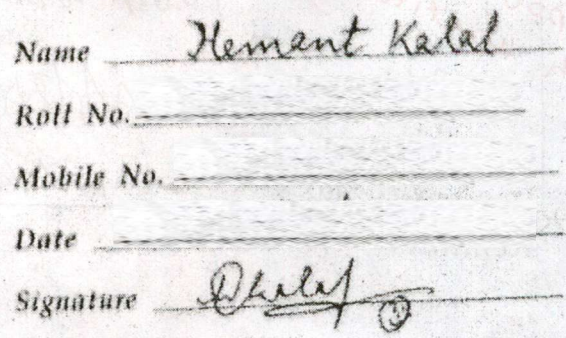 Name Hemant Kalal
Roll No.
Mobile No.
Date
Signature